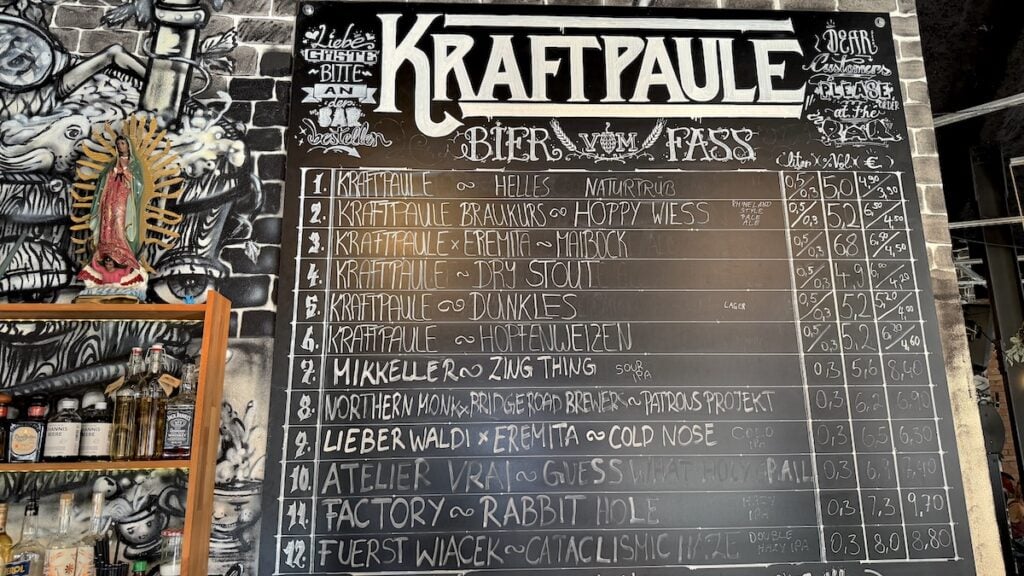 Liebe
Gäste
Bitte
an
der
Bar
bestellen
KRAFTPAULE
Dear
Customers
PLEASE
order
at the
BIER VOM FASS
(liter × %Vol × €)
1. KRAFTPAULE ~ HELLES NATURTRÜB 0,5/0,3 5,0 4,90/3,90
2. KRAFTPAULE BRAUKURS ~ HOPPY WIESS RHINELAND STYLE PALE ALE 0,5/0,3 5,2
3. KRAFTPAULE × EREMITA ~ MAIBOCK 0,5/0,3 6,8
4. KRAFTPAULE ~ DRY STOUT 0,5/0,3 4,9
5. KRAFTPAULE ~ DUNKLES LAGER 0,5/0,3 5,2 5,20/4,00
6. KRAFTPAULE ~ HOPFENWEIZEN 0,5/0,3 5,2
7. MIKKELLER ~ ZING THING SOUR IPA 0,3 5,6 8,40
8. NORTHERN MONK × BRIDGEROAD BREWERS ~ PATRONS PROJEKT 0,3 6,2 6,90
9. LIEBER WALDI × EREMITA ~ COLD NOSE COLD IPA 0,3 6,5 6,50
10. ATELIER VRAI ~ GUESS WHAT HOLY RAIL 0,3 6,7 7,40
11. FACTORY ~ RABBIT HOLE HAZY IPA 0,3 7,3 9,70
12. FUERST WIACEK ~ CATACLISMIC HAZE DOUBLE HAZY IPA 0,3 8,0 8,80
JACK DANIEL'S